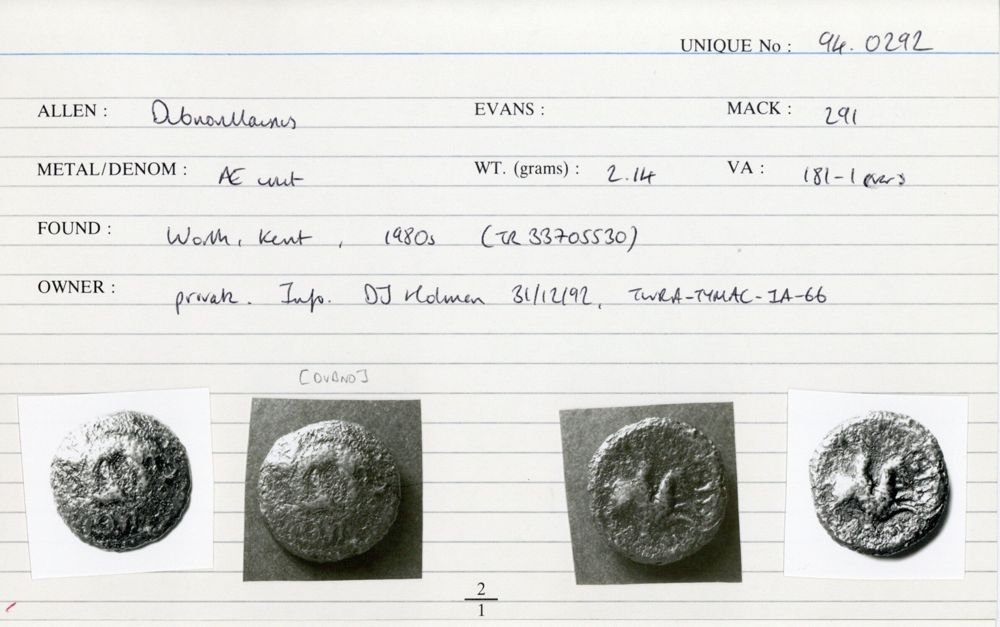 UNIQUE No : 94.0292
ALLEN : Dubnovellaunus EVANS : MACK : 291
METAL/DENOM : AE unit WT. (grams) : 2.14 VA : 181-1
FOUND : Worth, Kent, 1980s (TR 33705530)
OWNER : private. Info. DJ Holman 31/12/92, TWRA-TYMAC-IA-66
[DVBNO]
2
1